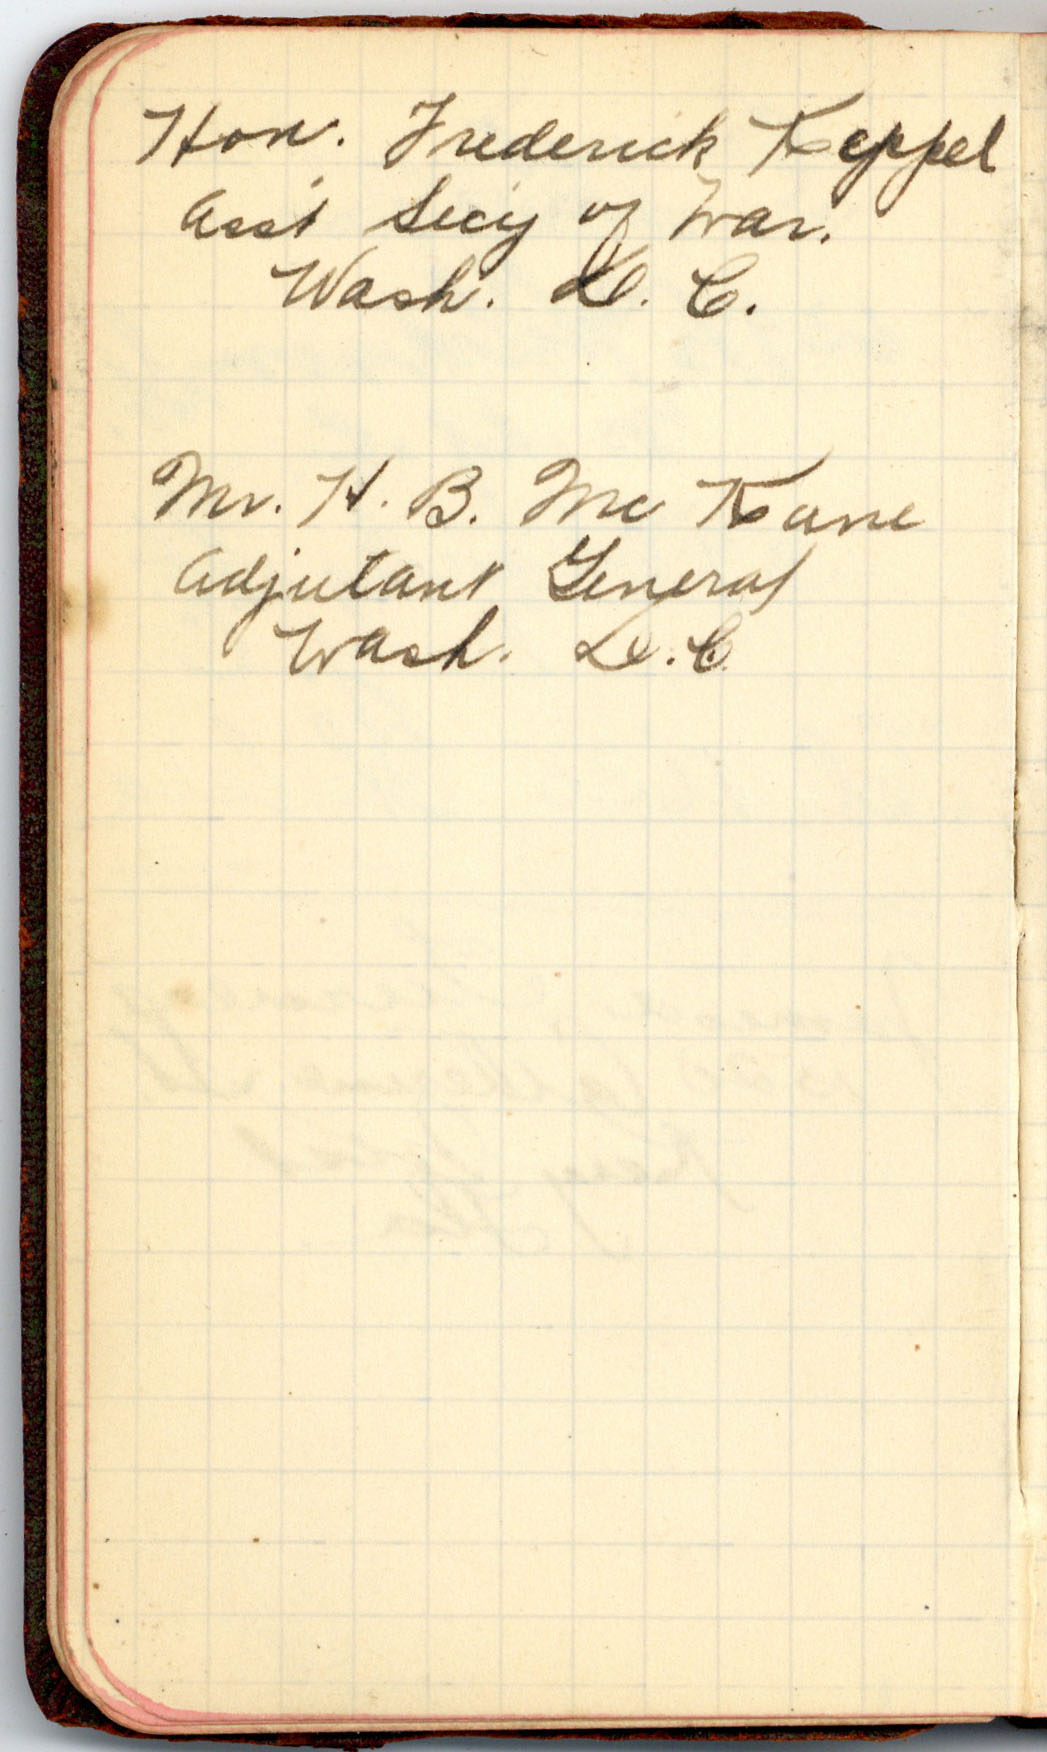 Hon. Frederick Keppel
Asst Secy of War.
Wash. D. C.
Mr. H. B. Mc Kane
Adjutant General
Wash. D. C.